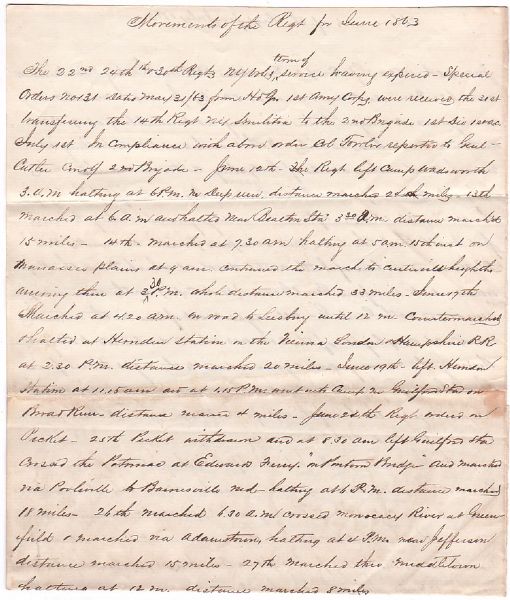 Movements of the Regt for June 1863
term of
The 22nd 24th & 30th Regts NY Vols, service having expired - Special
Orders No 131 dated May 31/63 from Hd Qrs 1st Army Corps, were received the 31st
transfering the 14th Regt Militia to the 2nd Brigade 1st Div
In compliance with above order Col Fowler reported to Genl
Cutler 2nd Brigade - June 12th - The Regt left Camp Wadsworth
3. A.M halting at 6 P.M. in Deep run, distance marched miles - 13th
marched at 6 A.m and halted near Bealton Sta 3 30 P.m. distance marched
15 miles - 14th - marched at 7.30 am halting at 5 am 15th inst on
Manassas plains at 9 am. continued the march to heights
arriving there at 3 30 P.M. whole distance marched 33 miles - June 17th
Marched at 4.20 am. on road to Leesburg until 12 m. Countermarched
& halted at Herndon Station on the Loudon & Hampshire R.R
at 2.30 P.M. distance marched 20 miles - June 19th - left Herndon
Station at 11.15 am and at 4.15 P.M. went into Camp nr Guilford Sta on
Broad Run - distance 4 miles - June 24th Regt ordered on
Picket - 25th Picket withdrawn and at 8.30 am left Guilford Sta
Crossed the Potomac at Edwards Ferry. "on Pontoon Bridge" and marched
via Poolsville to Barnesville Md - halting at 6 P.M. distance marched
18 miles - 26th marched 6.30 A.M crossed Monocacy River at Green-
field & marched via Adamstown, halting at 4 P.M. near Jefferson
distance marched 15 miles - 27th marched thro Middletown
halting at 12 m. distance marched 8 miles